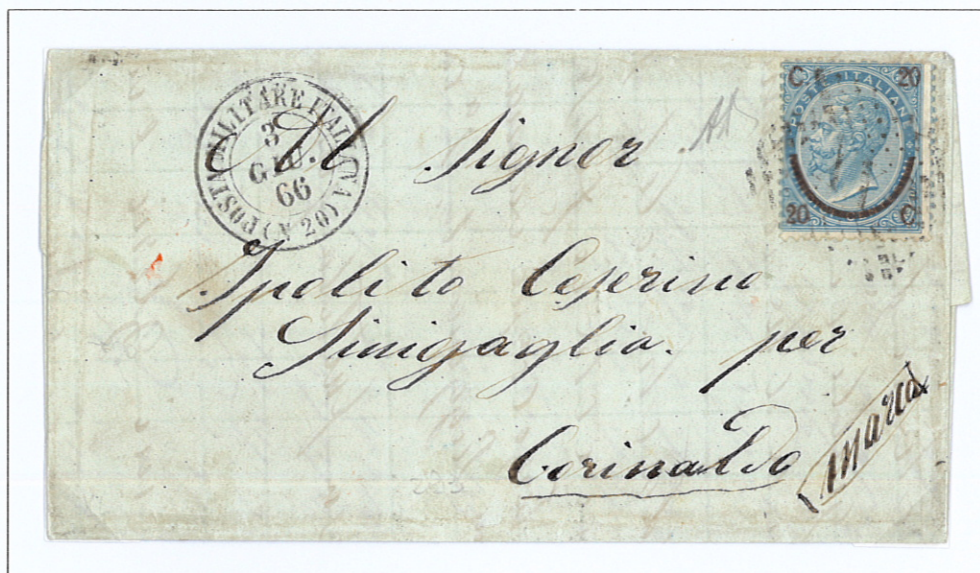 POSTA MILITARE ITALIANA (N. 20)
3
GIU.
66
C 20
POSTE ITALIANE
20 C
Al Signor
Ipolito Ceprino
Sinigaglia. per
Corinaldo